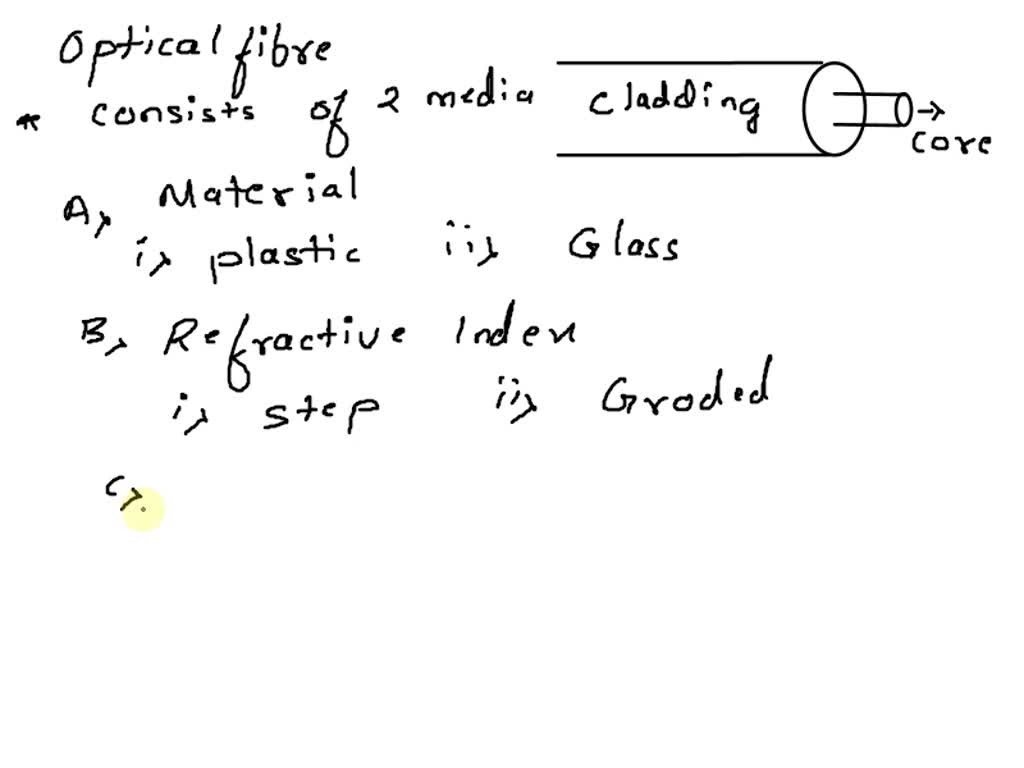 Optical fibre
* consists of 2 media
cladding
core
A, Material
i, plastic ii, Glass
B, Refractive Index
i, step ii, Groded
C,